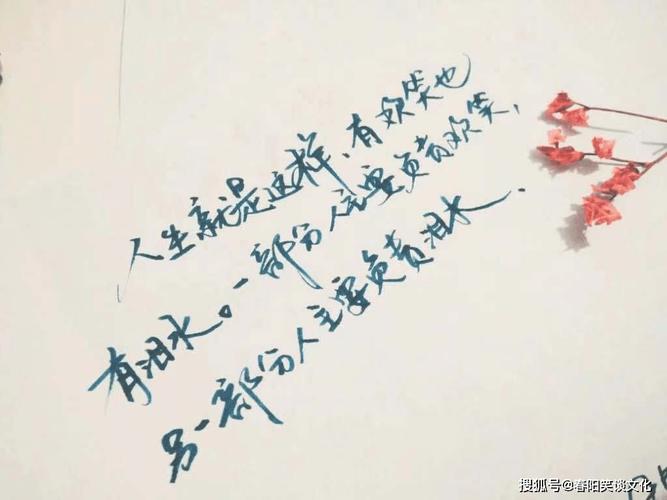 人生就是这样,有欢笑也
有泪水。一部分人主要负责欢笑,
另一部分人主要负责泪水.
搜狐号@春阳笑谈文化